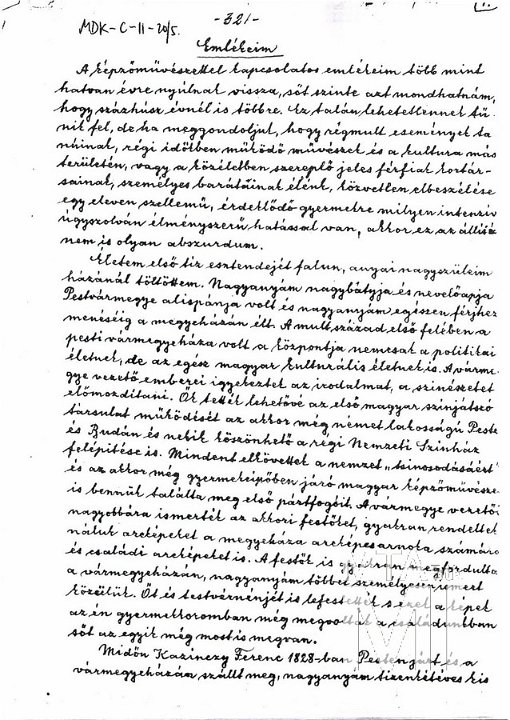 -321-
MDK-C-II-20/5.
Emlékeim
A képzőművészettel kapcsolatos emlékeim több mint
hatvan évre nyúlnak vissza, sőt szinte azt mondhatnám,
hogy százhúsz évnél is többre. Ez talán lehetetlennek tű-
nik fel, de ha meggondoljuk, hogy régmult események ta-
núinak, régi időkben működő művészek és a kultura más
területén, vagy a közéletben szereplő jeles férfiak kortár-
sainak, személyes barátainak élénk, közvetlen elbeszélése
egy eleven szellemű, érdeklődő gyermekre milyen intenzív
úgyszolván élményszerű hatással van, akkor ez az állítás
nem is olyan abszurdum.
Életem első tíz esztendejét falun, anyai nagyszüleim
házánál töltöttem. Nagyanyám nagybátyja és nevelőapja
Pestvármegye alispánja volt és nagyanyám egészen férjhez
menéséig a megyeházán élt. A mult század első felében a
pesti vármegyeháza volt a központja nemcsak a politikai
életnek, de az egész magyar kulturális életnek is. A várme-
gye vezető emberei igyekeztek az irodalmat, a színészetet
előmozdítani. Ők tették lehetővé az első magyar színjátszó
társulat működését az akkor még német lakosságú Pesten
és Budán és nekik köszönhető a régi Nemzeti Színház
felépítése is. Mindent elkövettek a nemzet „csinosodásáért"
és az akkor még gyermekcipőben járó magyar képzőművészet
is bennük találta meg első pártfogóit. A vármegye vezetői
nagyobbára ismerték az akkori festőket, gyakran rendeltek
náluk arcképeket a megyeháza arcképcsarnoka számára
és családi arcképeket is. A festők is gyakran megfordultak
a vármegyeházán, nagyanyám többet személyesen ismert
közülük. Őt és testvérnénjét is lefestették s ezek a képek
az én gyermekkoromban még megvoltak a családunkban
sőt az egyik még most is megvan.
Midőn Kazinczy Ferenc 1828-ban Pesten járt és a
vármegyeházán szállt meg, nagyanyám tizenkétéves kis